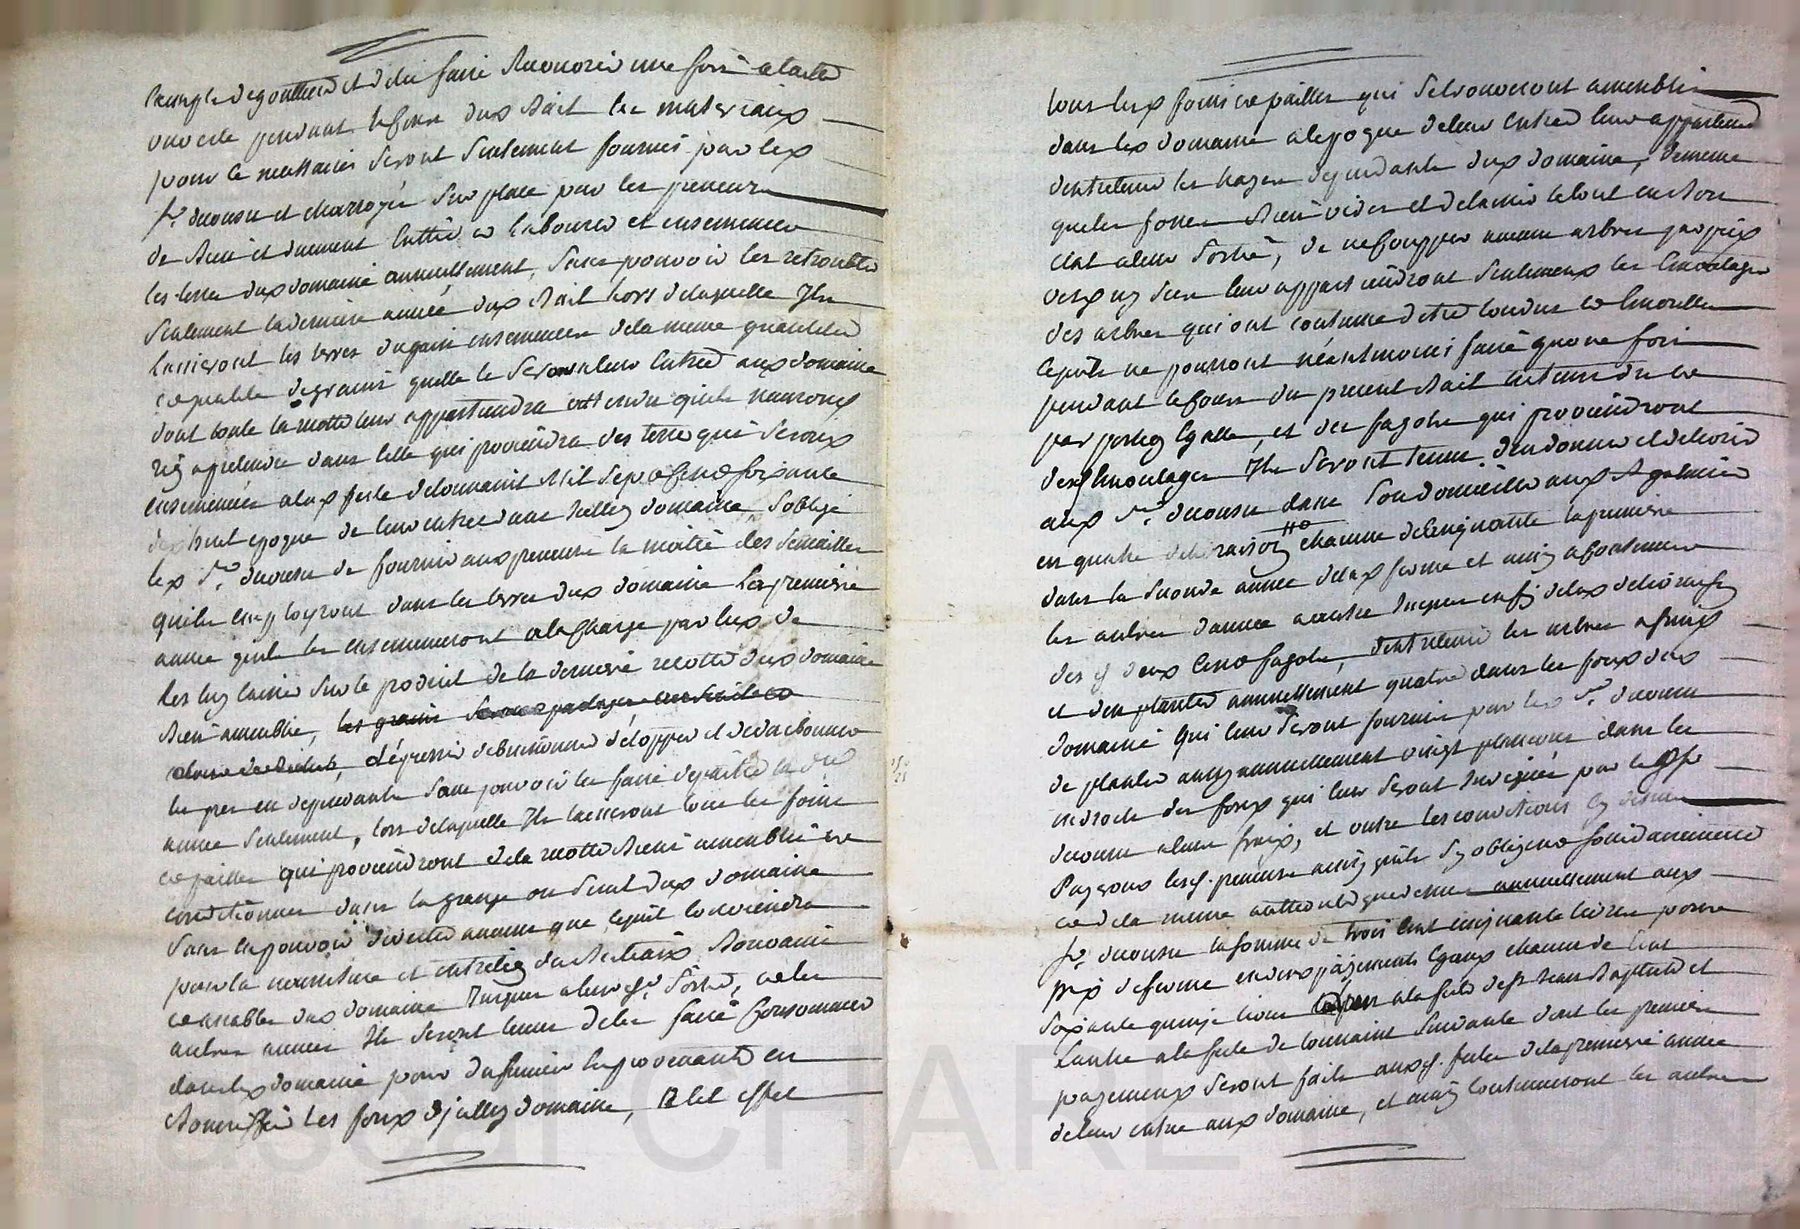 exempts degouttiere et deles faire Recouvrir une fois a latte
ouverte pendant le cours dud Bail les materiaux
pour ce necessaires seront seulement fournis par led
sr. ducousu et charroyés sur place par les preneurs
de bien et duement cultiver labourer et ensemencer
les terres dud domaine annuellement, sans pouvoir les retroubler
seulement la derniere année dud Bail lors de laquelle Ils
laisseront les terres dugain ensemencées de la meme quantité
et qualité de grains quelle le seront a leur entrée aud domaine
dont toute la recotte leur appartiendra attendu quils nauront
rien a prétendre dans celle qui proviendra des terres qui seront
ensemencées a lad feste de toussaint mil sept cent soixante
dix huit epoque de leur entrée dans jcelluy domaine, s'oblige
led sr. ducousu de fournir aux preneurs la moitié des semailles
quils employront dans les terres dud domaine La premiere
année quils les ensemenceront a la charge par eux de
les luy laisser sur le produit de la derniere recotte dud domaine
Bien ameublie, les grains seront partagés
d'épessir debuissonner détopper et detaubonner
les prés en dependants sans pouvoir les faire depaitre la dre
année seulement, lors de laquelle Ils laisseront tous les foins
et pailles qui proviendront de la recotte Bien ameublies et
conditionnées dans la grange ou fenil dud domaine
sans en pouvoir divertir aucune que ce qu'il conviendra
pour la nourriture et entretien des Bestiaux Bouvains
et arrables dud domaine Jusques a leurd. sortie, et les
autres années Ils seront tenus deles faire Consommer
dans led domaine pour du fumier en provenants en
Bonniffier les fonds djcelluy domaine, A cet effet
tous lesd foins et pailles qui se trouveront ameublis
dans led domaine alepoque deleur entrée leur appartiendront
dentretenir les hayes dependantes dud domaine, de meme
que les fossés Bien vidés et delaisser le tout en bon
etat a leur sortie, de ne coupper aucuns arbres par pied
vers ny secs leur appartiendront seulement les Emondages
des arbres qui ont coutume detre tondus et Emondés
ce quils ne pourront néantmoins faire qu'une fois
pendant le cours du present Bail en temps du et
par portion Egalle, et des fagots qui proviendront
desd Emondages Ils seront tenus d'en donner et delivrer
aud sr. ducousu dans son domicille aud St galmier
en quatre delivraisons chacune de Cinquante la premiere
dans la seconde année delad ferme et ainsy a continuer
les autres d'année a autre Jusques en fin delad delivraison
desd deux Cens fagots, d'entretenir les arbres a fruit
et d'en planter annuellement quatre dans les fonds dud
domaine qui leur seront fournis par led sr. ducousu
de planter aussy annuellement vingt plançons dans les
endroits des fonds qui leur seront Indiqués par led sr
ducousu a leurs frais, et outre les conditions cy dessus
Payerons lesd. preneurs ainsy quils sy obligent solidairement
et de la meme authorité que dessus annuellement aud
sr. ducousu la somme de trois cent cinquante livres pour
prix deferme en deux payements Egaux chacun de Cent
soixante quinze livres a la feste de st Jean Baptiste et
L'autre a la feste de toussaint suivante dont les premiers
payements seront faits auxd. festes de la premiere année
deleur entrée aud domaine, et ainsy Continueront les autres
Pascal CHARETRON